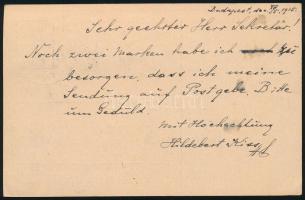 Budapest, den 1915.
Sehr geehrter Herr Sekretär!
Noch zwei Marken habe ich zu
besorgen, dass ich meine
Sendung auf Post gebe. Bitte
um Geduld.
Mit Hochachtung
Hildebert Kiss